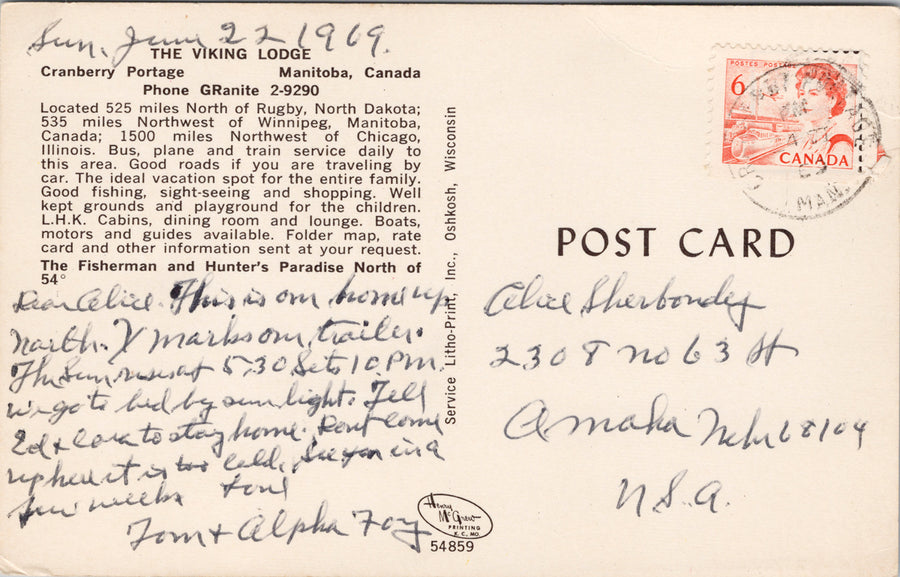 Sun, June 22 1969.
THE VIKING LODGE
Cranberry Portage Manitoba, Canada
Phone GRanite 2-9290
Located 525 miles North of Rugby, North Dakota;
535 miles Northwest of Winnipeg, Manitoba,
Canada; 1500 miles Northwest of Chicago,
Illinois. Bus, plane and train service daily to
this area. Good roads if you are traveling by
car. The ideal vacation spot for the entire family.
Good fishing, sight-seeing and shopping. Well
kept grounds and playground for the children.
L.H.K. Cabins, dining room and lounge. Boats,
motors and guides available. Folder map, rate
card and other information sent at your request.
The Fisherman and Hunter's Paradise North of
54°
Dear Alice. This is our home up
north. X marks our trailer.
The Sun rises at 5:30 Sets 10 P.M.
we go to bed by sun light. Tell
Ed + Cora to stay home. Dont come
up here it is too cold. See you in a
few weeks Love
Tom + Alpha Foy
Service Litho-Print, Inc., Oshkosh, Wisconsin
Henry
McGrew
PRINTING
K. C. MO.
54859
POSTES POSTAGE
6
CANADA
PORTAGE
MAN.
POST CARD
Alice Sherbondy
2308 no 63 St
Omaha Nebr 68104
U.S.A.